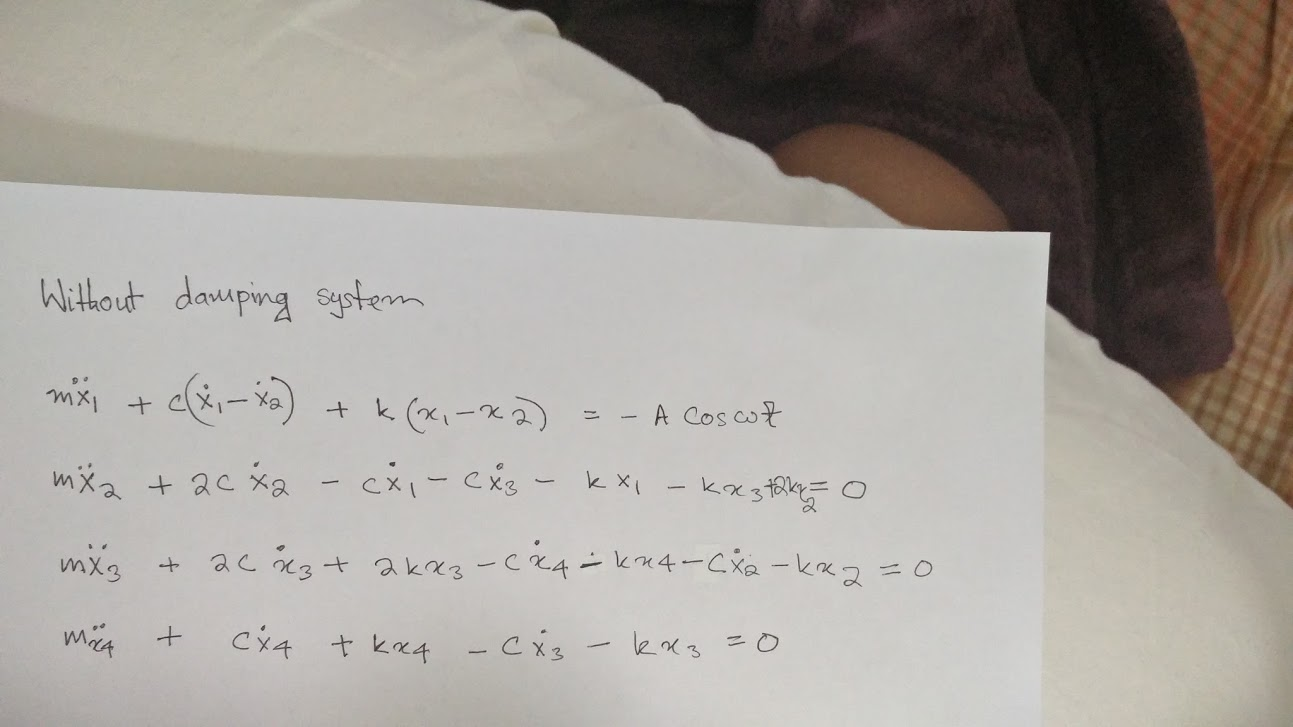 Without damping system
mẍ₁ + c(ẋ₁-ẋ₂) + k(x₁-x₂) = -A Cosωt
mẍ₂ + 2cẋ₂ - cẋ₁ - cẋ₃ - kx₁ - kx₃+2kx₂=0
mẍ₃ + 2cẋ₃ + 2kx₃ - cẋ₄ - kx₄ - cẋ₂ - kx₂ = 0
mẍ₄ + cẋ₄ + kx₄ - cẋ₃ - kx₃ = 0